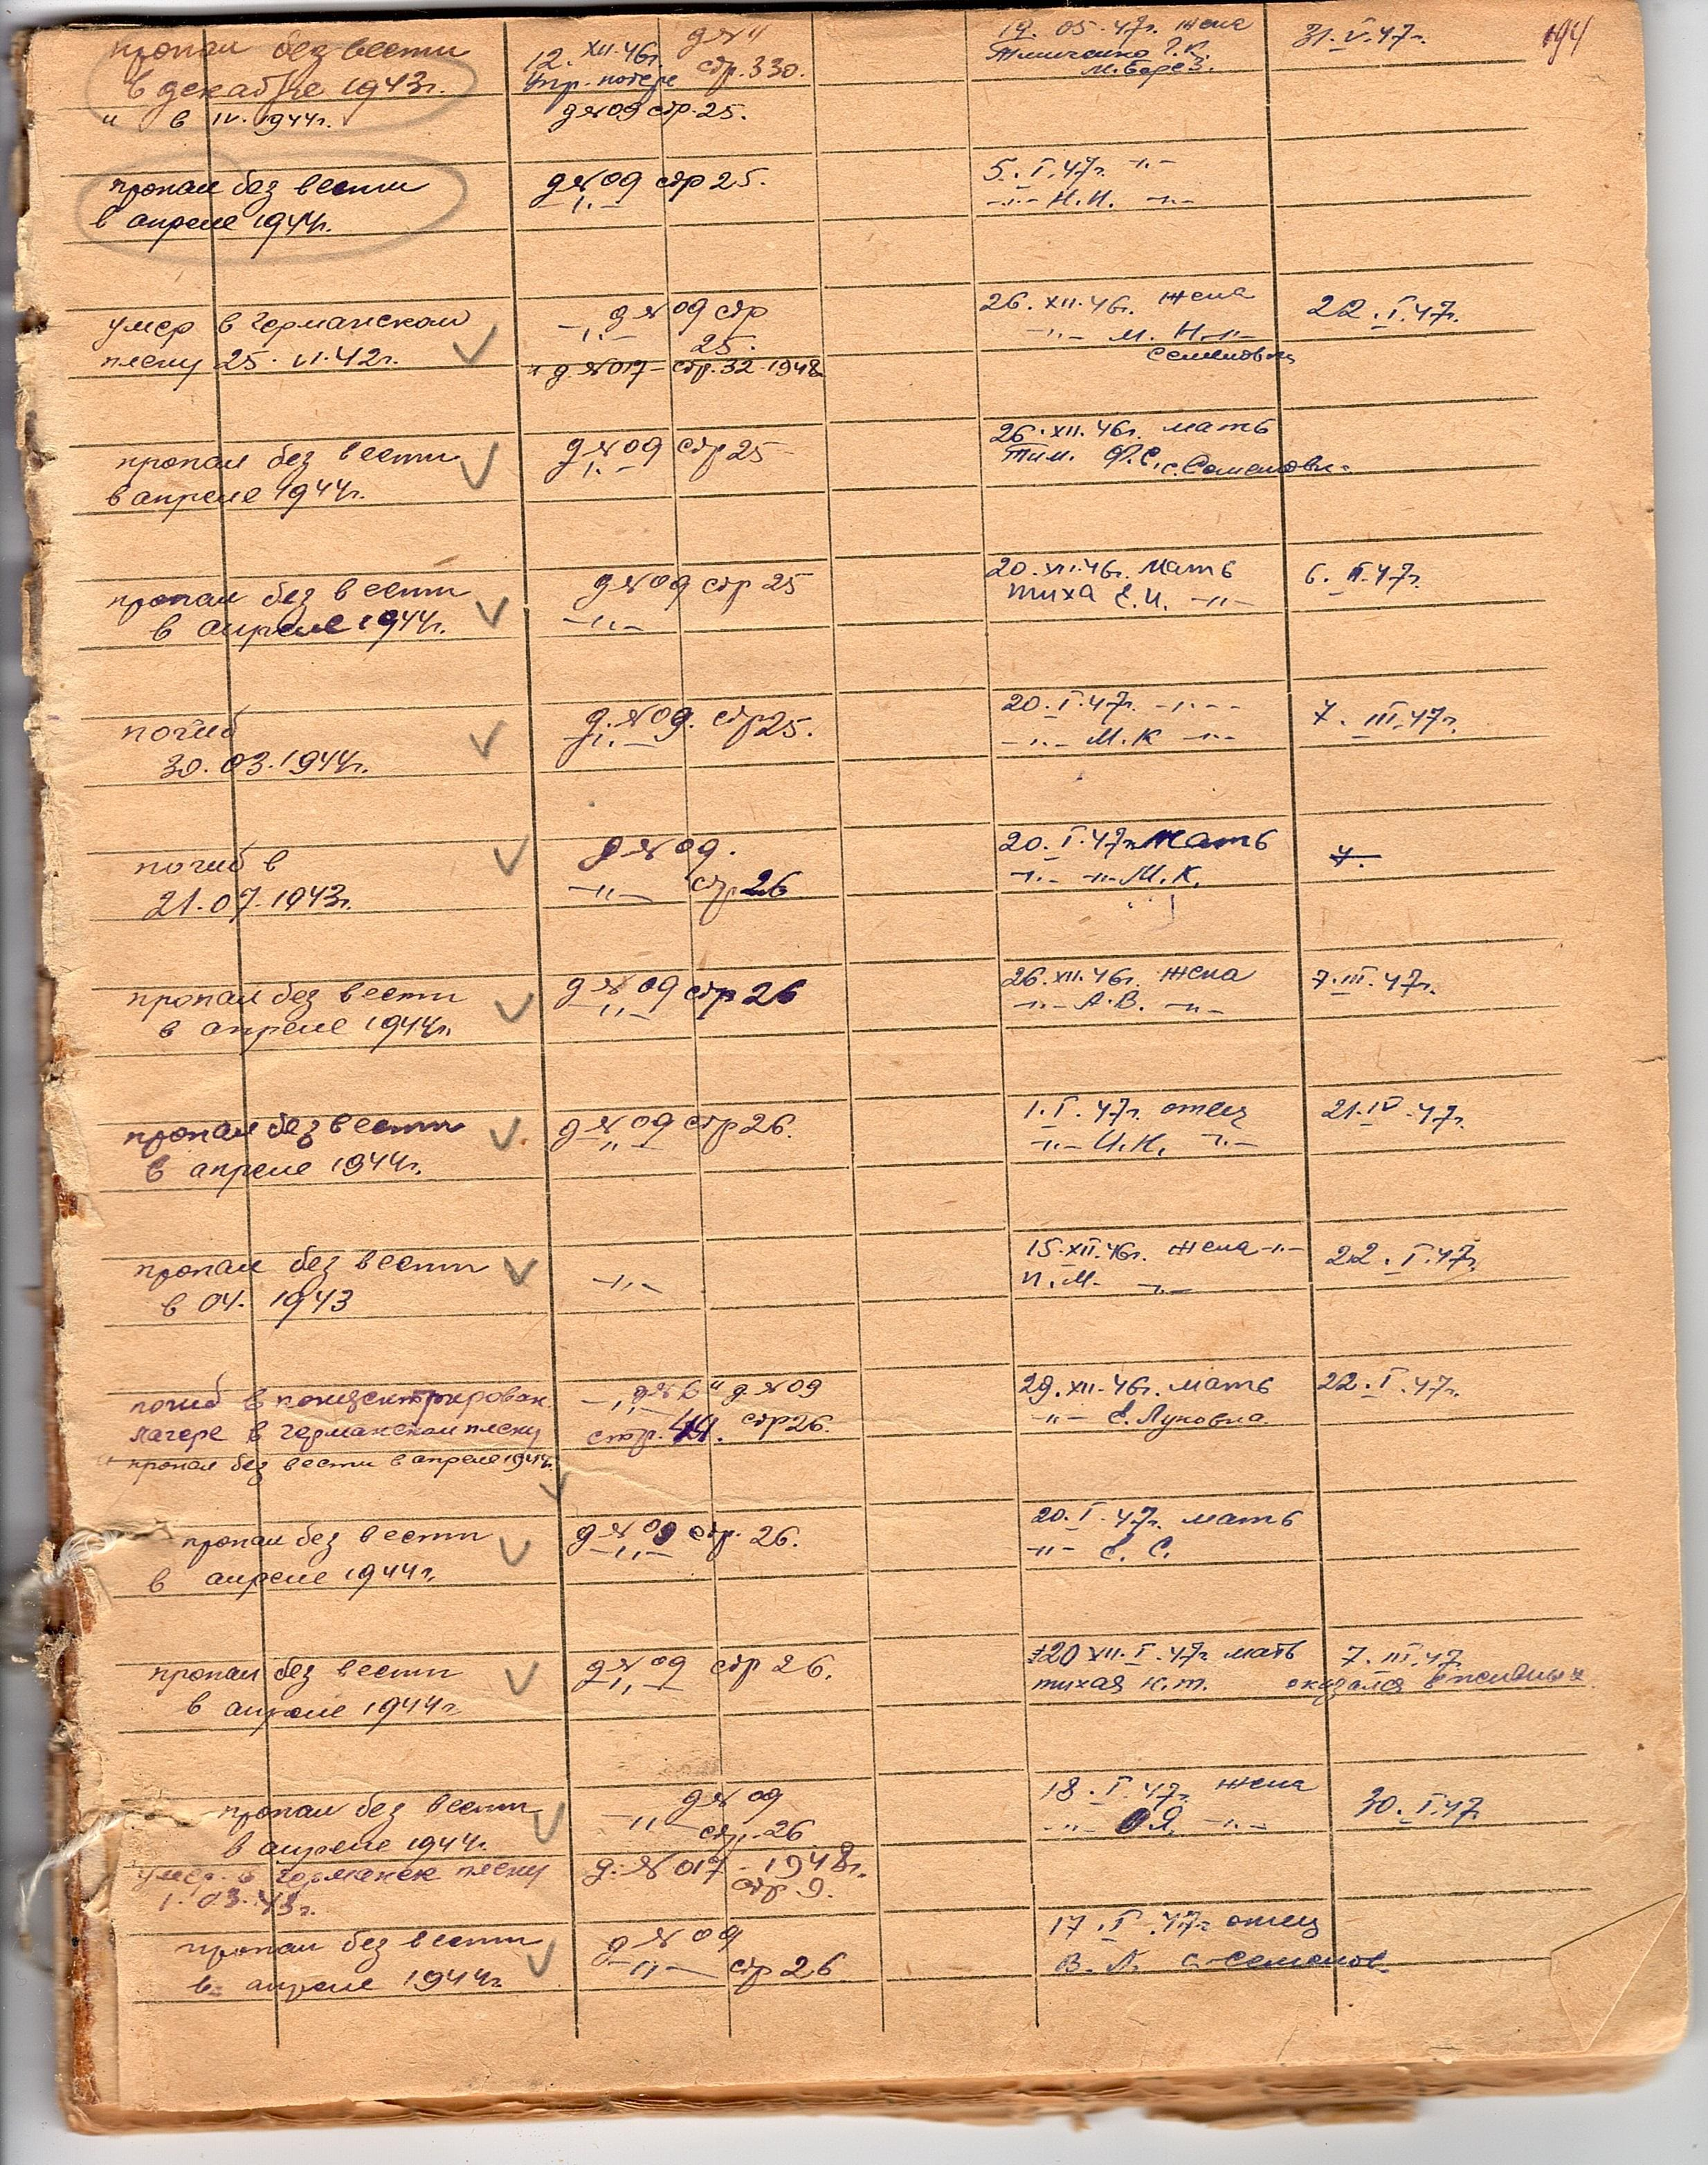 194
пропал без вести
в декабре 1943г.
" в IV. 1944г.
12. XII. 46г. д № 11
стр. 330.
д № 09 стр. 25.
19. 05. 47г. жена
Г. К.
М. Берез.
31. V. 47г.
пропал без вести
в апреле 1944г.
д № 09 стр 25.
-"-
5. I. 47г. -"-
-"- Н. И. -"-
умер в германском
плену 25. VI. 42г.
д № 09 стр
-"- 25.
" д. № 017 - стр. 32 - 1948
26. XII. 46г. жена
-"- М. Н. -"-
Семеновка
22. I. 47г.
пропал без вести
в апреле 1944г.
д № 09 стр 25
-"-
26. XII. 46г. мать
Тим. Ф. С. с. Семеновк-
пропал без вести
в апреле 1944г.
д № 09 стр 25
-"-
20. XII. 46г. мать
тиха Е. И. -"-
6. II. 47г.
погиб
30. 03. 1944г.
д. № 09. стр 25.
-"-
20. I. 47г. -"-
-"- М. К -"-
7. III. 47г.
погиб в
21. 07. 1943г.
д № 09.
-"- стр 26
20. I. 47г. мать
-"- -"- М. К.
7.
пропал без вести
в апреле 1944г.
д № 09 стр 26
-"-
26. XII. 46г. жена
-"- А. В. -"-
7. III. 47г.
пропал без вести
в апреле 1944г.
д № 09 стр 26.
-"-
1. I. 47г. отец
-"- И. Н. -"-
21. IV. 47г.
пропал без вести
в 04. 1943
-"-
15. XII. 46г. жена -"-
П. М. -"-
22. I. 47г.
погиб в концентрирован.
лагере в германском плену
" пропал без вести в апреле 1944г.
-"- д № 6 " д № 09
стр. 44. стр 26.
29. XII. 46г. мать
-"- Е. Луковна
22. I. 47г.
пропал без вести
в апреле 1944г.
д № 09 стр. 26.
-"-
20. I. 47г. мать
-"- Е. С.
пропал без вести
в апреле 1944г
д № 09 стр 26.
-"-
20 XII. I. 47г мать
тихая К. Т.
7. III. 47
оказался в живых
пропал без вести
в апреле 1944г.
умер в германск плену
1. 03. 43г.
д № 09
-"- стр. 26
д. № 017 - 1948г.
стр. 9.
18. I. 47г. жена
-"- О. Я. -"-
30. I. 47
пропал без вести
в апреле 1944г
д № 09
-"- стр 26
17. I. 47г отец
В. Л. с-Семенов-